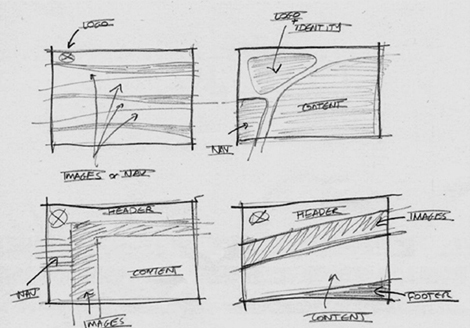 LOGO
IMAGES OR NAV
LOGO
+
IDENTITY
CONTENT
NAV
HEADER
CONTENT
NAV
IMAGES
HEADER
IMAGES
FOOTER
CONTENT